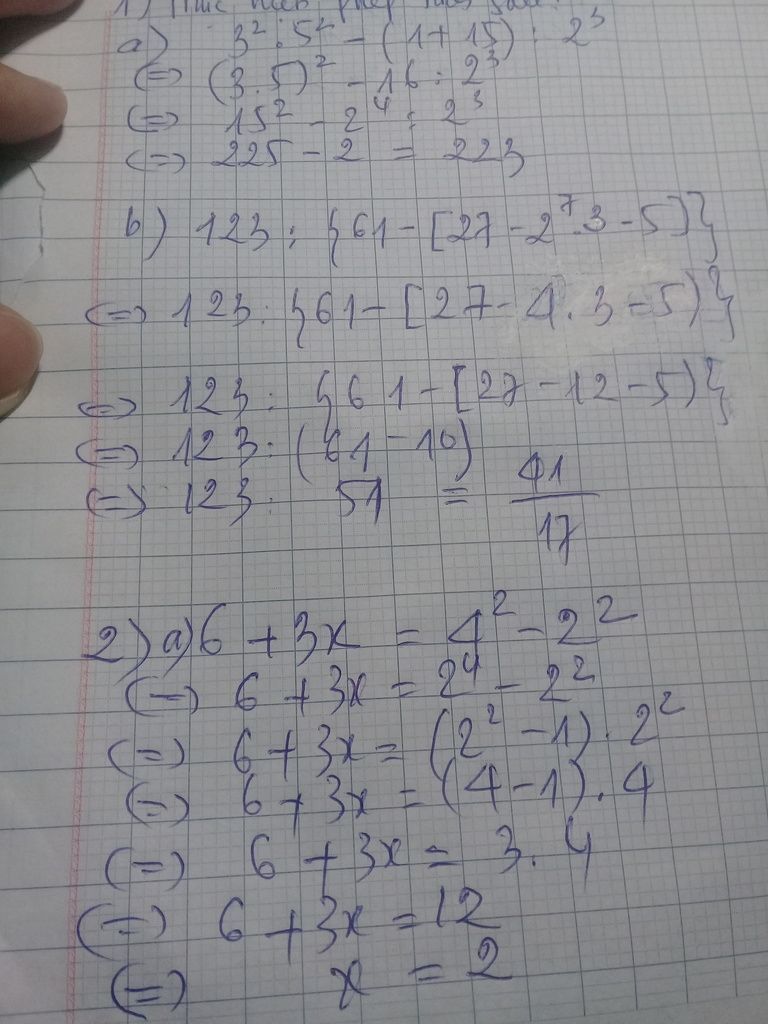 1)
a) 3² . 5² - (1 + 15) : 2³
(=) (3.5)² - 16 : 2³
(=) 15² - 2⁴ : 2³
(=) 225 - 2 = 223
b) 123 : {61 - [27 - 2⁷.3 - 5)}
(=) 123 : {61 - [27 - 4.3 - 5)}
(=) 123 : {61 - [27 - 12 - 5)}
(=) 123 : (61 - 10)
(=) 123 : 51 = 41/17
2) a) 6 + 3x = 4² - 2²
(=) 6 + 3x = 2⁴ - 2²
(=) 6 + 3x = (2² - 1) . 2²
(=) 6 + 3x = (4 - 1) . 4
(=) 6 + 3x = 3 . 4
(=) 6 + 3x = 12
(=) x = 2